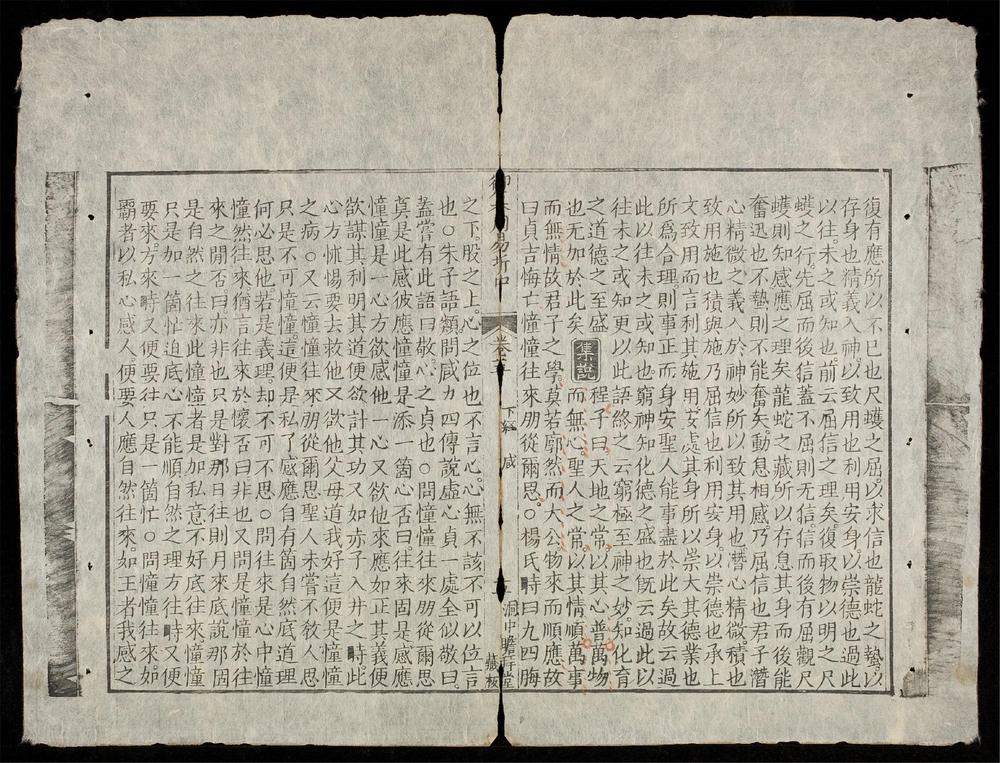 復有應所以不已也尺蠖之屈以求信也龍蛇之蟄以
存身也精義入神以致用也利用安身以崇德也過此
以往未之或知也前云屈信之理矣復取物以明之尺
蠖之行先屈而後信蓋不屈則无信信而後有屈觀尺
蠖則知感應之理矣龍蛇之藏所以存息其身而後能
奮迅也不蟄則不能奮矣動息相感乃屈信也君子潛
心精微之義入於神妙所以致其用也潛心精微積也
致用施也積與施乃屈信也利用安身以崇德也承上
文致用而言利其施用安處其身所以崇大其德業也
所爲合理則事正而身安聖人能事盡於此矣故云過
此以往未之或知也窮神知化德之盛也旣云過此以
往未之或知更以此語終之云窮極至神之妙知化育
之道德之至盛
也无加於此矣
集說
程子曰天地之常以其心普萬物
而無心聖人之常以其情順萬事
而無情故君子之學莫若廓然而大公物來而順應故
曰貞吉悔亡憧憧往來朋從爾思○楊氏時曰九四腓
御 周易折中
卷
下經 咸
藏板
之下股之上心之位也不言心心無不該不可以位言
也○朱子語類問咸九四傳說虛心貞一處全似敬曰
蓋嘗有此語曰敬心之貞也○問憧憧往來朋從爾思
莫是此感彼應憧憧是添一箇心否曰往來固是感應
憧憧是一心方欲感他一心又欲他來應如正其義便
欲謀其利明其道便欲計其功又如赤子入井之時此
心方怵惕要去救他又欲他父母道我好這便是憧憧
之病○又云憧憧往來朋從爾思聖人未嘗不敎人思
只是不可憧憧這便是私了感應自有箇自然底道理
何必思他若是義理却不可不思○問往來是心中憧
憧然往來猶言往來於懷否曰非也又問是憧憧於往
來之閒否曰亦非也只是對那日往則月來底說那固
是自然之往來此憧憧者是加私意不好底往來憧憧
只是加一箇忙迫底心不能順自然之理方往時又便
要來方來時又便要往只是一箇忙○問憧憧往來如
霸者以私心感人便要人應自然往來如王者我感之